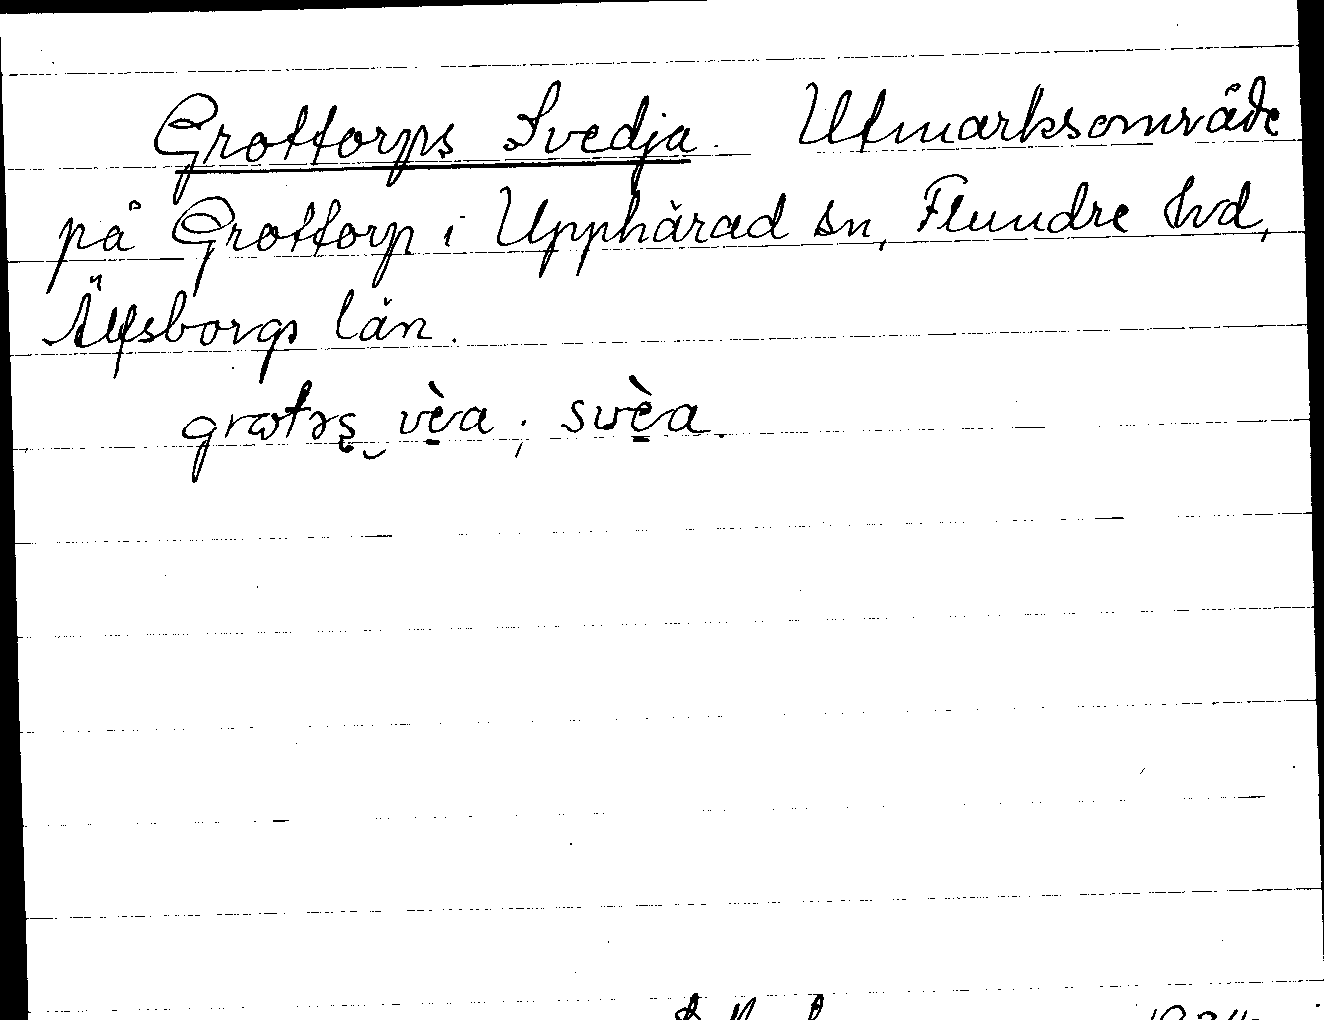 Grottorps Svedja. Utmarksområde
på Grottorp i Upphärad sn, Flundre hd,
Älfsborgs län.
grɷtrʂ‿vèa ; svèa.